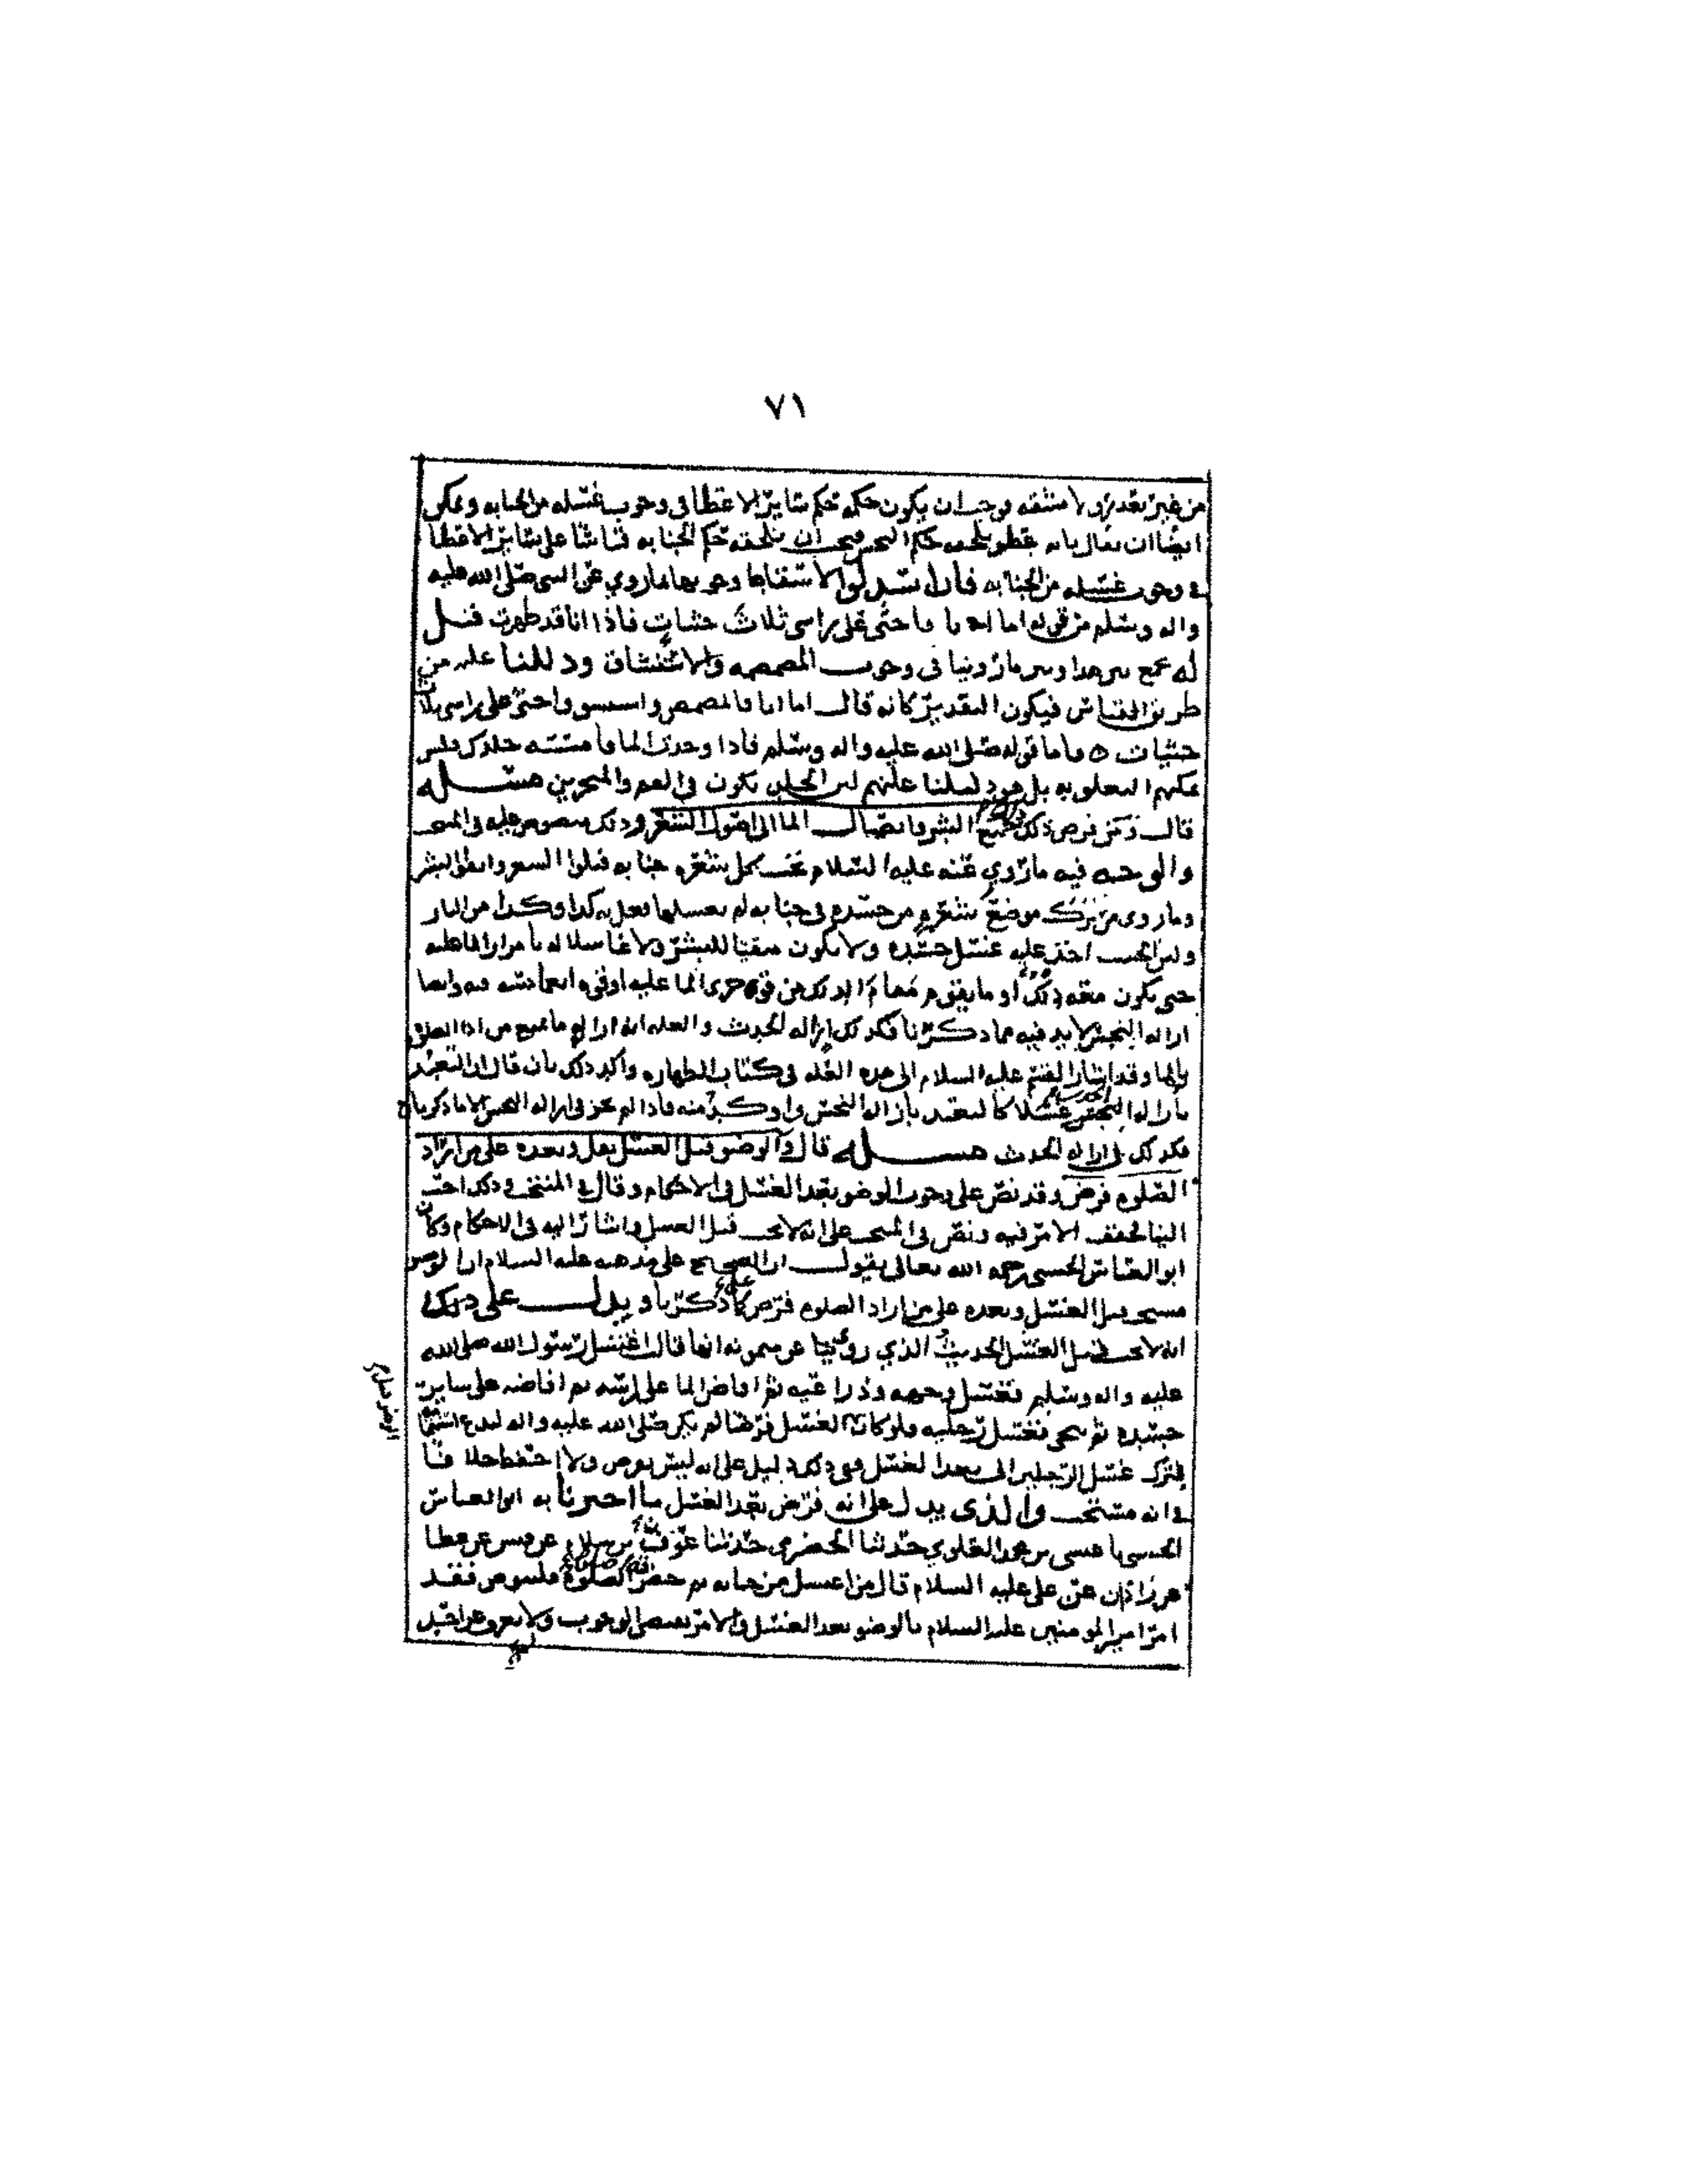 ٧١
من غير تعذر ولا مشقه وجب ان يكون حكمه حكم سائر الاعضا في وجوب غسله من الجنابه ويمكن
ايضا ان يقال بانه عضو يلحقه حكم النجس فيجب ان يلحقه حكم الجنابه قياسا على سائر الاعضا
في وجوب غسله من الجنابه فان استدلوا لاسقاط وجوبها بما روي عن النبي صلى الله عليه
واله وسلم من قوله اما انا فاحثي على راسي ثلاث حثيات فاذا انا قد طهرت قيل
له نجمع بين هذا وبين ما روينا في وجوب المضمضه والاستنشاق ودللنا عليه من
طريق القياس فيكون التقدير كانه قال اما انا فاتمضمض واستنشق واحثي على راسي ثلاث
حثيات ٥ فاما قوله صلى الله عليه واله وسلم فاذا وجدت الما فامسسه جلدك فليس
يمكنهم التعلق به بل هو دليلنا عليهم لان الجلد يكون في الفم والمنخرين مسلة
قال ثم فرض ذلك جميع البشر وايصال الما الى اصول الشعر وذلك منصوص عليه في المنتخب
والوجه فيه ما روي عنه عليه السلام تحت كل شعره جنابه فبلوا الشعر وانقوا البشر
وما روي من ترك موضع شعره من جسده في جنابه لم يغسلها فعل به كذا وكذا من النار
ولان الجنب اخذ عليه غسل جسده ولا يكون منقيا للبشر ولا غاسلا له بامرار الما عليه
حتى يكون معه ذلك او ما يقوم مقام الدلك من قوة جري الما عليه او قوه انغماسه فيه وايضا
ازاله النجس لا بد فيه مما ذكرنا فكذلك ازاله الحدث والعله انه ازاله ما يمنع من اداء الصلوه
بالما وقد اشار القسم عليه السلام الى هذه العله في كتاب الطهاره واكد ذلك بان قال ان التعبد
بازاله النجس غسلا كالتعبد بازاله النجس واوكد منه فاذا لم يجز في ازاله النجس الا ما ذكرناه
فكذلك في ازاله الحدث مسله قال والوضو قبل الغسل نفل وبعده على من اراد
الصلوه فرض وقد نص على وجوب الوضو بعد الغسل في الاحكام وقال في المنتخب وذلك احب
الينا فخفف الامر فيه ونص في المنتخب على انه لا يجب قبل الغسل واشار اليه في الاحكام وكان
ابو العباس الحسني رحمه الله تعالى يقول ان الصحيح على مذهبه عليه السلام ان الوضو
مستحب قبل الغسل وبعده على من اراد الصلوه فرض كما ذكرنا ويدل على ذلك
انه لا يجب قبل الغسل الحديث الذي روينا عن ميمونه انها قالت اغتسل رسول الله صلى الله
عليه واله وسلم فغسل وجهه وذراعيه ثم افاض الما على راسه ثم افاضه على سائر
جسده ثم تنحى فغسل رجليه فلو كان الغسل فرضا لم يكن صلى الله عليه واله ليدع
فترك غسل الرجلين الى بعد الغسل ففي ذلك دليل على انه ليس بفرض ولا احفظ خلافا
في انه مستحب والذي يدل على انه فرض بعد الغسل ما اخبرنا به ابو العباس
الحسني با عيسى بن محمد العلوي حدثنا الحضرمي حدثنا عوف بن سلام عن قيس عن عطا
عن زاذان عن علي عليه السلام قال من اغتسل من جنابه ثم حضر الصلوة فليتوض فقد
امر امير المومنين عليه السلام بالوضو بعد الغسل والامر يقتضي الوجوب ولا يعرف عن احد